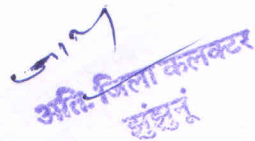 अति. जिला कलक्टर
झुंझुनूं